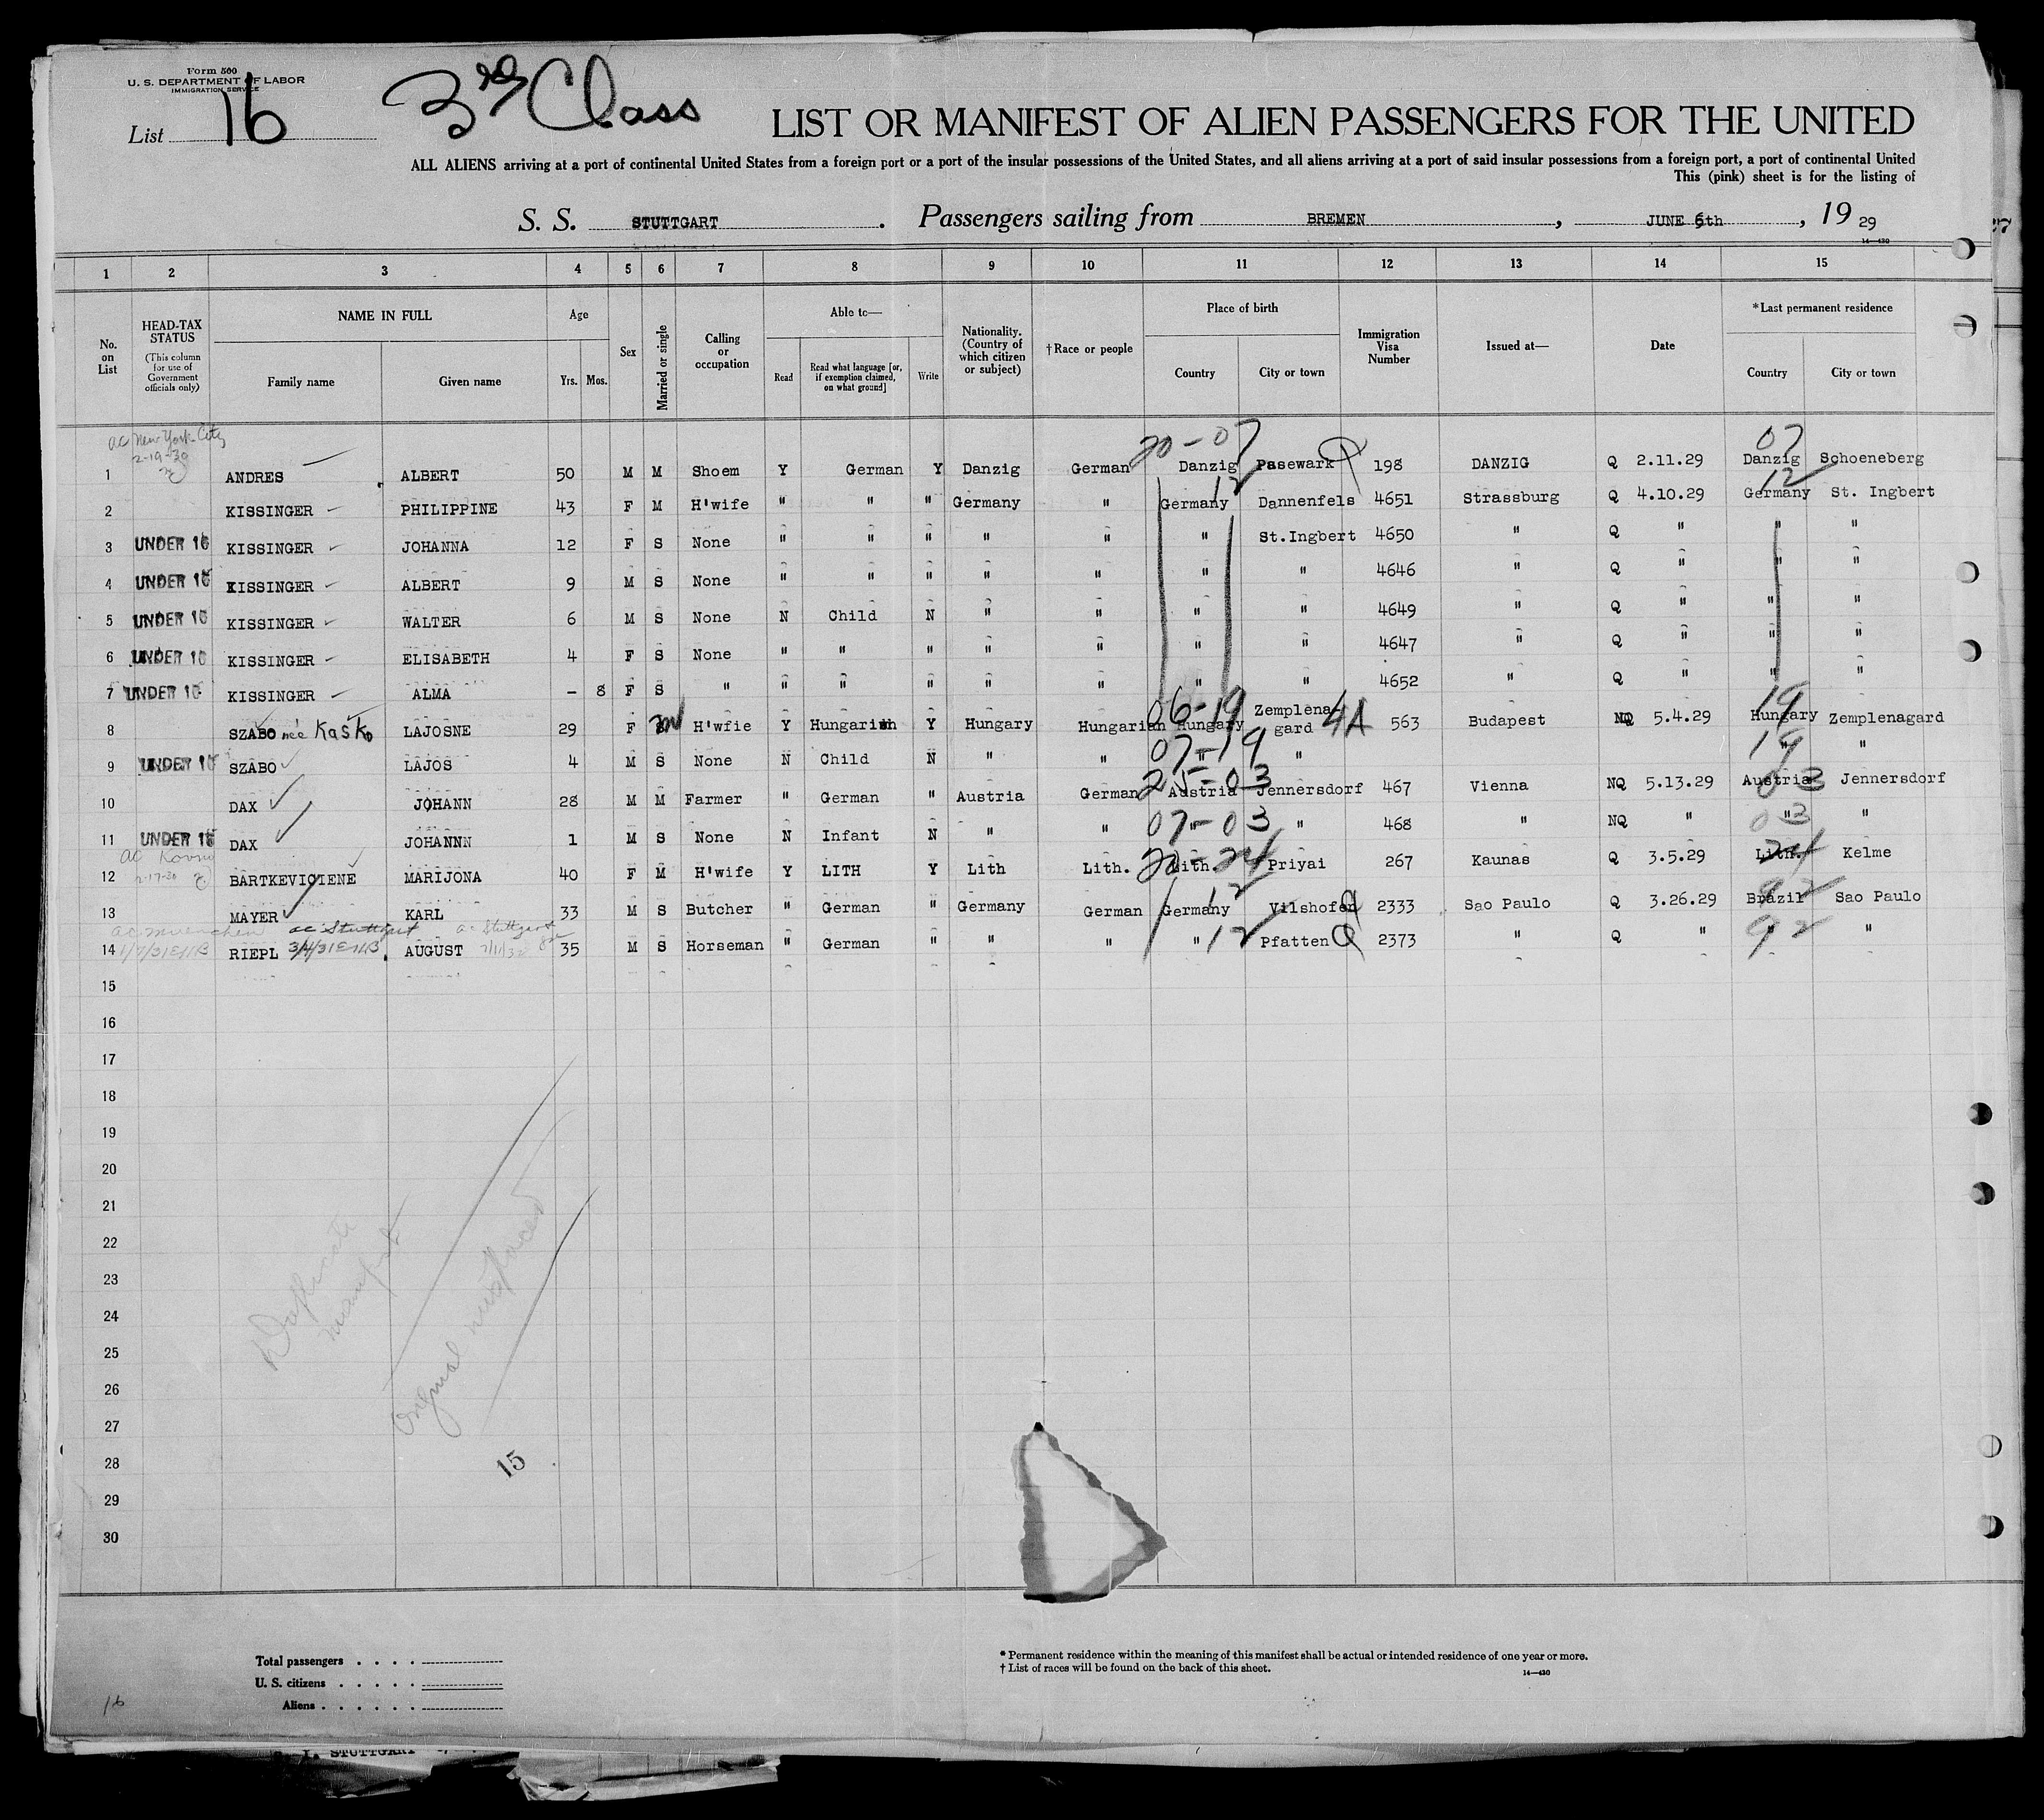 Form 500
U. S. DEPARTMENT OF LABOR
IMMIGRATION SERVICE
List 16
3rd Class
LIST OR MANIFEST OF ALIEN PASSENGERS FOR THE UNITED
ALL ALIENS arriving at a port of continental United States from a foreign port or a port of the insular possessions of the United States, and all aliens arriving at a port of said insular possessions from a foreign port, a port of continental United
This (pink) sheet is for the listing of
S. S. STUTTGART. Passengers sailing from BREMEN, JUNE 6th, 19 29
14—430
1 2 3 4 5 6 7 8 9 10 11 12 13 14 15
No. on List
HEAD-TAX STATUS (This column for use of Government officials only)
NAME IN FULL
Family name Given name
Age
Yrs. Mos.
Sex
Married or single
Calling or occupation
Able to—
Read
Read what language [or, if exemption claimed, on what ground]
Write
Nationality. (Country of which citizen or subject)
†Race or people
Place of birth
Country City or town
Immigration Visa Number
Issued at—
Date
*Last permanent residence
Country City or town
ac New York City
2-19-30
20-07 07
1 ANDRES ALBERT 50 M M Shoem Y German Y Danzig German Danzig Pasewark 198 DANZIG Q 2.11.29 Danzig Schoeneberg
12 12
2 KISSINGER PHILIPPINE 43 F M H'wife " " " Germany " Germany Dannenfels 4651 Strassburg Q 4.10.29 Germany St. Ingbert
3 UNDER 16 KISSINGER JOHANNA 12 F S None " " " " " " St.Ingbert 4650 " Q " " "
4 UNDER 16 KISSINGER ALBERT 9 M S None " " " " " " " 4646 " Q " " "
5 UNDER 16 KISSINGER WALTER 6 M S None N Child N " " " " 4649 " Q " " "
6 UNDER 16 KISSINGER ELISABETH 4 F S None " " " " " " " 4647 " Q " " "
7 UNDER 16 KISSINGER ALMA - 8 F S " " " " " " " " 4652 " Q " " "
06-19 4A 19
8 SZABO née Kasko LAJOSNE 29 F M H'wfie Y Hungarian Y Hungary Hungarian Hungary Zemplena gard 563 Budapest NQ 5.4.29 Hungary Zemplenagard
07-19 19
9 UNDER 16 SZABO LAJOS 4 M S None N Child N " " " " "
25-03 03
10 DAX JOHANN 28 M M Farmer " German " Austria German Austria Jennersdorf 467 Vienna NQ 5.13.29 Austria Jennersdorf
07-03 03
11 UNDER 16 DAX JOHANNN 1 M S None N Infant N " " " " 468 " NQ " " "
ac Kovno
2-17-30
24 24
12 BARTKEVICIENE MARIJONA 40 F M H'wife Y LITH Y Lith Lith. Lith. Priyai 267 Kaunas Q 3.5.29 Lith. Kelme
12 92
13 MAYER KARL 33 M S Butcher " German " Germany German Germany Vilshofen 2333 Sao Paulo Q 3.26.29 Brazil Sao Paulo
ac Muenchen ac Stuttgart ac Stuttgart
12 92
14 RIEPL AUGUST 35 M S Horseman " German " " " " Pfatten 2373 " Q " " "
15
16
17
18
19
20
21
22
23
24
25
26
27
28
29
30
Duplicate
manifest
Original misplaced
15
Total passengers
U. S. citizens
Aliens
* Permanent residence within the meaning of this manifest shall be actual or intended residence of one year or more.
† List of races will be found on the back of this sheet.
14—430
16
STUTTGART